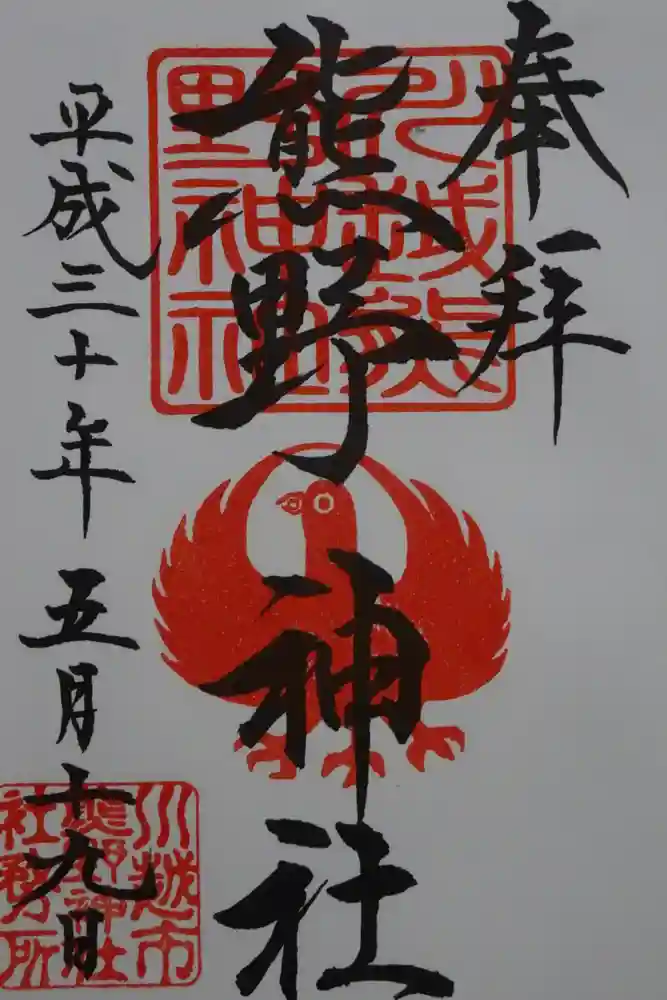 奉拝
川越熊野神社
熊野神社
平成三十年五月十九日
川越市
熊野神社
社務所